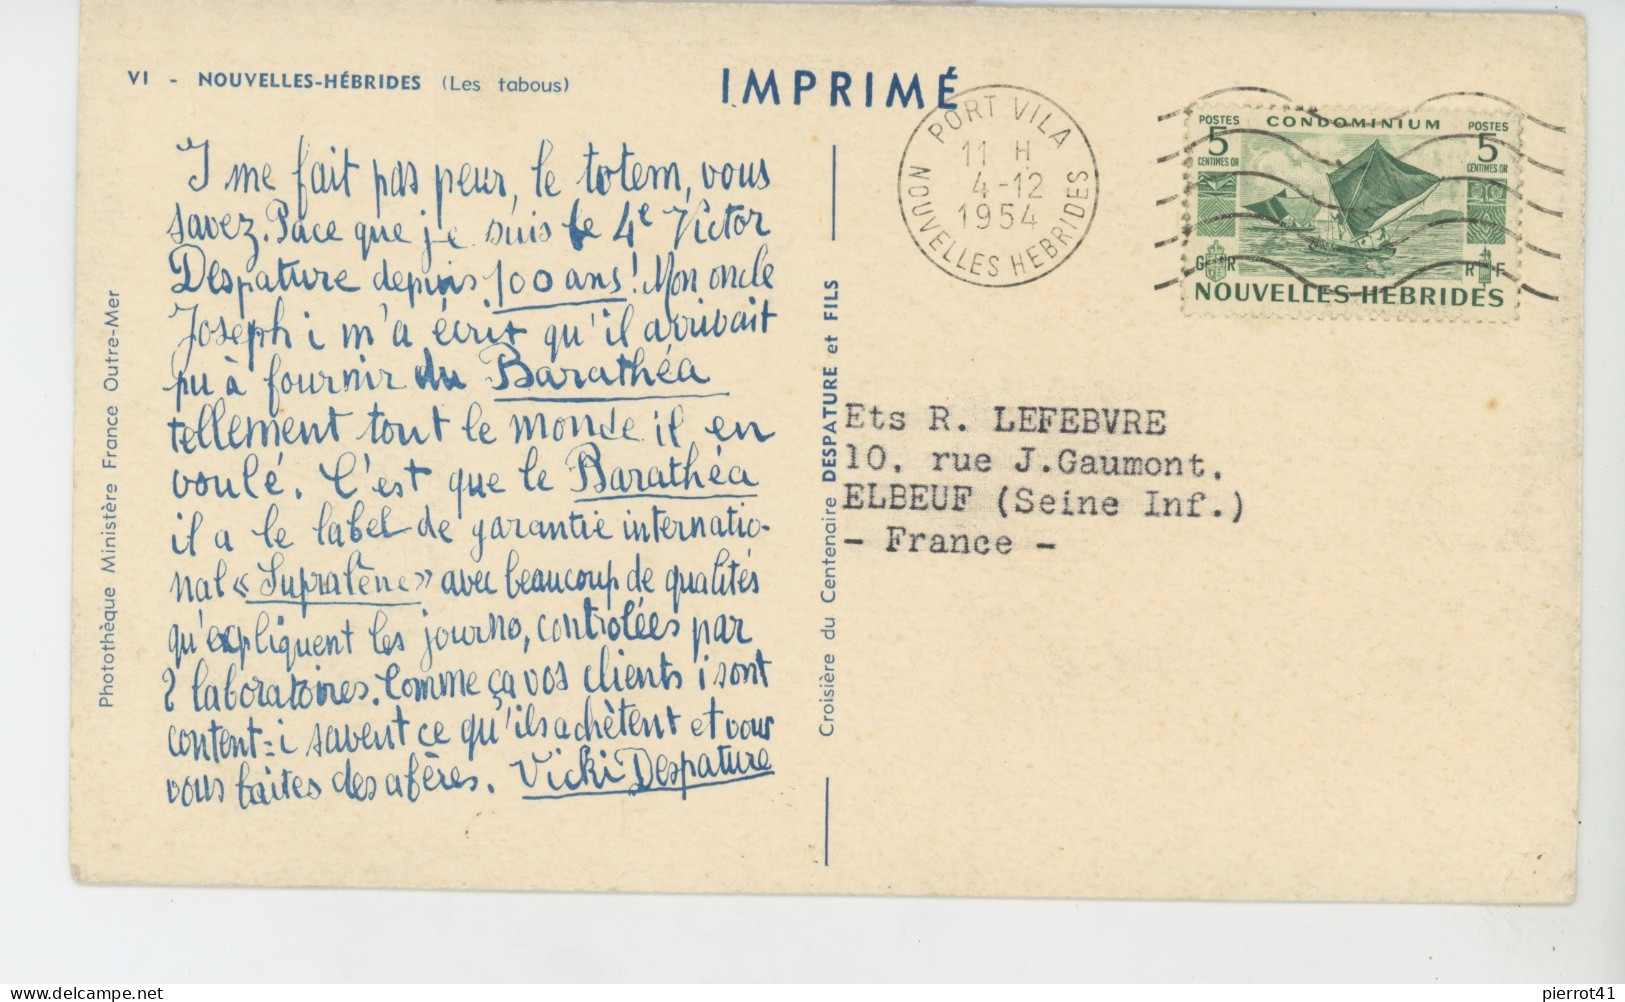 VI - NOUVELLES-HÉBRIDES (Les tabous)
IMPRIMÉ
I me fait pas peur, le totem, vous
savez. Pace que je suis le 4e Victor
Despature depuis 100 ans! Mon oncle
Joseph i m'a écrit qu'il arrivait
pu à fournir du Barathéa
tellement tout le monde il en
voulé. C'est que le Barathéa
il a le label de garantie internatio-
nal « Supralène » avec beaucoup de qualités
qu'expliquent les journo, contrôlées par
2 laboratoires. Comme ça vos clients i sont
content = i savent ce qu'ils achètent et vous
vous faites des afères. Vicki Despature
Photothèque Ministère France Outre-Mer
Croisière du Centenaire DESPATURE et FILS
PORT VILA
11 H
4-12
1954
NOUVELLES HEBRIDES
POSTES CONDOMINIUM POSTES
5 5
CENTIMES OR CENTIMES OR
G R R F
NOUVELLES-HEBRIDES
Ets R. LEFEBVRE
10, rue J.Gaumont.
ELBEUF (Seine Inf.)
- France -
pierrot41